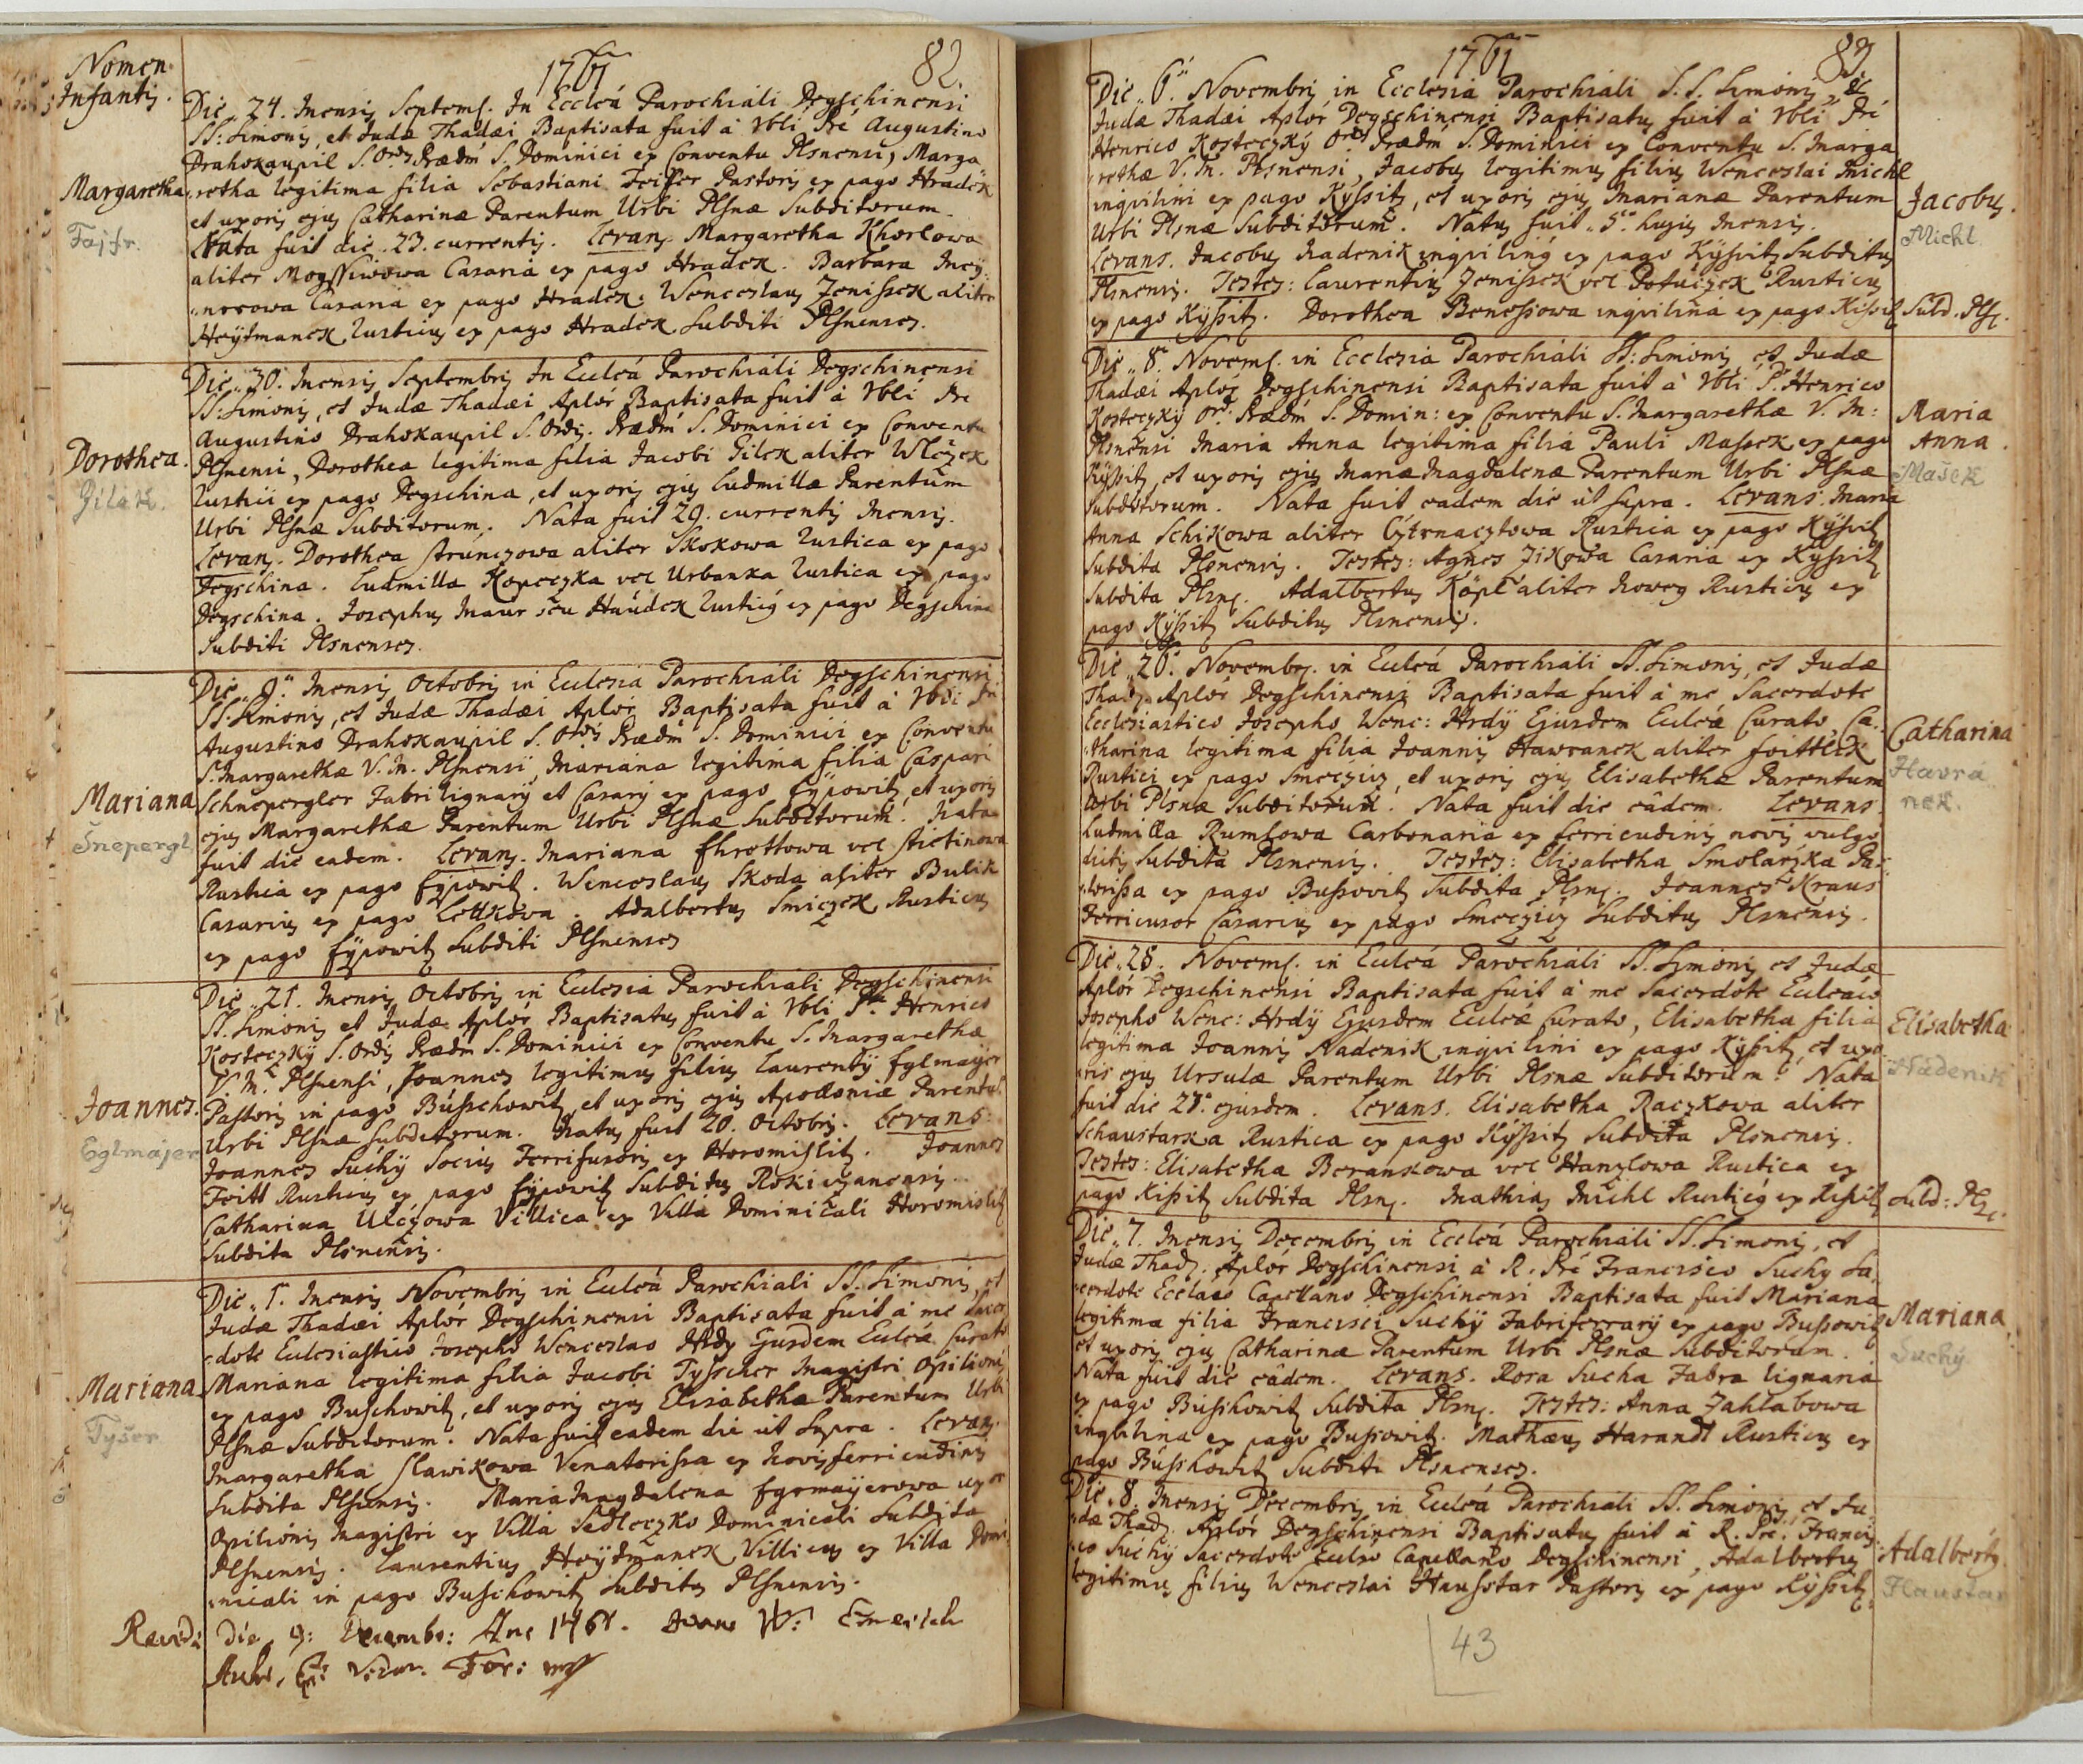 Nomen
Infantis.
1761
82
Die 24. Mensis Septemb. In Eccleâ Parochiali Degschinensi
SS: Simonis, et Judæ Thadæi Baptisata fuit â Vbli Pre Augustino
Drahokaupil S. Ords Prædm S. Dominici ex Conventu Plsnensi, Marga
Margaretha
retha legitima filia Sebastiani Feiffer Pastoris ex pago Hradek
et uxoris ejus Catharinæ Parentum Urbi Plsnæ Subditorum.
Fajfr.
Nata fuit die 23. currentis. Levans Margaretha
aliter Casaria ex pago Hradek. Barbara
Casaria ex pago Hradek. Wenceslaus Jenissek aliter
Heÿtmanek Rusticus ex pago Hradek Subditi Plsnenses.
Die 30. Mensis Septembris In Eccleâ Parochiali Degschinensi
SS: Simonis, et Judæ Thadæi Aplor Baptisata fuit â Vbli Pre
Augustino Drahokaupil S. Ordis. Prædm S. Dominici ex Conventu
Dorothea.
Plsnensi, Dorothea legitima filia Jacobi Gilek aliter Wlczek
Gilek.
Rustici ex pago Degschina, et uxoris ejus Ludmillæ Parentum
Urbi Plsnæ Subditorum. Nata fuit 29. currentis Mensis.
Levans. Dorothea Strunczowa aliter Skokowa Rustica ex pago
Degschina. Ludmilla Kopeczka vel Urbanka Rustica ex pago
Degschina. Josephus Maur seu Haudek Rusticus ex pago Degschina
Subditi Plsnenses.
Die 9. Mensis Octobris in Ecclesia Parochiali Degschinensi
SS: Simonis, et Judæ Thadæi Aplor Baptisata fuit â Vbli Pre
Augustino Drahokaupil S. Ordis Prædm S. Dominici ex Conventu
S. Margarethæ V. M. Plsnensi, Mariana legitima filia Caspari
Mariana
Schnepergler Fabri lignarÿ et Casarÿ ex pago Eÿpowitz, et uxoris
Šnepergl.
ejus Margarethæ Parentum Urbi Plsnæ Subditorum. Nata
fuit die eadem. Levans. Mariana vel
Rustica ex pago Eÿpowitz. Wenceslaus Skoda aliter Bulik
Casarius ex pago Lettkowa. Adalbertus Smiczek Rusticus
ex pago Eÿpowitz Subditi Plsnenses
Die 21. Mensis Octobris in Ecclesia Parochiali Degschinensi
SS. Simonis et Judæ Aplor Baptisatus fuit â Vbli P. Henrico
Kosteczkÿ S. Ordis Prædm S. Dominici ex Conventu S. Margarethæ
V. M. Plsnensi, Joannes legitimus filius Laurentÿ Eglmaÿer
Joannes.
Pastoris in pago Busschowitz et uxoris ejus Apolloniæ Parentum
Eglmajer
Urbi Plsnæ Subditorum. Natus fuit 20. Octobris. Levans:
Joannes Suchÿ Socius Ferrifusoris ex Horomislitz. Joannes
Foitt Rusticus ex pago Eÿpowitz Subditus Rokiczanensis.
Catharina Ulczowa Villica ex Villa Dominicali Horomislitz
Subdita Plsnensis.
Die 1. Mensis Novembris in Eccleâ Parochiali SS. Simonis, et
Judæ Thadæi Aplor Degschinensi Baptisata fuit â me Sacer
dote Ecclesiastico Josepho Wenceslao Hrdy Ejusdem Eccleæ Curato
Mariana
Mariana legitima filia Jacobi Tÿsscher Magistri Opilionis
Tyšer
ex pago Buschowitz, et uxoris ejus Elisabethæ Parentum Urbi
Plsnæ Subditorum. Nata fuit eadem die ut Supra. Levans.
Margaretha Slawikowa Venatorissa ex Novis ferricudinis
Subdita Plsnensis. Maria Magdalena Egrmaÿerowa uxor
Opilionis Magistri ex Villa Sedleczko Dominicali Subdita
Plsnensis. Laurentius Heÿtmanek Villicus ex Villa Domi
nicali in pago Buschowitz Subditus Plsnensis.
Revidi die 9: Decembr: Ano 1761.
1761
83
Die 6. Novembris in Ecclesia Parochiali S. S. Simonis, &
Judæ Thadæi Aplor Degschinensi Baptisatus fuit â Vbli Pri
Henrico Kosteczkÿ Ord. Prædm S. Dominici ex Conventu S. Marga
rethæ V. M. Plsnensi, Jacobus legitimus filius Wenceslai Michl
Jacobus.
inqvilini ex pago Kÿssitz, et uxoris ejus Marianæ Parentum
Michl
Urbi Plsnæ Subditorum. Natus fuit 5. hujus Mensis.
Levans. Jacobus Nadenik inqvilinus ex pago Kÿssitz Subditus
Plsnensis. Testes: Laurentius Jenissek vel Potuczek Rusticus
ex pago Kÿssitz. Dorothea Benessowa inqvilina ex pago Kissitz Subd. Pls.
Die 8. Novemb. in Ecclesia Parochiali SS: Simonis, et Judæ
Thadæi Aplor Degschinensi Baptisata fuit â Vbli P. Henrico
Kosteczkÿ Ord. Prædm S. Domin: ex Conventu S. Margarethæ V. M:
Maria
Anna.
Plsnensi Maria Anna legitima filia Pauli Massek ex pago
Mašek
Kÿssitz, et uxoris ejus Mariæ Magdalenæ Parentum Urbi Plsnæ
Subditorum. Nata fuit eadem die ut supra. Levans. Maria
Anna Schikowa aliter Rustica ex pago Kÿssitz
Subdita Plsnensis. Testes: Agnes Jikowa Casaria ex Kÿssitz
Subdita Plsn. Adalbertus Köpl aliter Noweg Rusticus ex
pago Kÿssitz Subditus Plsnensis.
Die 26. Novembr. in Eccleâ Parochiali SS. Simonis, et Judæ
Thad. Aplor Degschinensis Baptisata fuit â me Sacerdote
Ecclesiastico Josepho Wenc: Hrdÿ Ejusdem Eccleæ Curato, Ca
Catharina
tharina legitima filia Joannis Hawranek aliter Foittlik
Havránek.
Rustici ex pago Smeczicz, et uxoris ejus Elisabethæ Parentum
Urbi Plsnæ Subditorum. Nata fuit die eâdem. Levans
Ludmilla Carbonaria ex ferricudinis novis vulgo
dictis Subdita Plsnensis. Testes: Elisabetha Smolarzka Pa
storissa ex pago Bussovitz Subdita Plsn. Joannes Kraus
Ferricusor Casarius ex pago Smeczicz Subditus Plsnensis.
Die 28. Novemb. in Eccleâ Parochiali SS. Simonis et Judæ
Aplor Degschinensi Baptisata fuit â me Sacerdote Eccleaco
Josepho Wenc: Hrdÿ Ejusdem Eccleæ Curato, Elisabetha filia
Elisabetha
legitima Joannis Nadenik inqvilini ex pago Kÿssitz, et uxo
Nádenik
ris ejus Ursulæ Parentum Urbi Plsnæ Subditorum. Nata
fuit die 27. ejusdem. Levans. Elisabetha Raczkowa aliter
Schaustarka Rustica ex pago Kÿssitz Subdita Plsnensis.
Testes: Elisabetha Berankowa vel Hanzlowa Rustica ex
pago Kissitz Subdita Plsn. Mathias Michl Rusticus ex Kissitz Subd: Pls.
Die 7. Mensis Decembris in Eccleâ Parochiali SS. Simonis, et
Judæ Thad. Aplor Degschinensi â R. Pre Francisco Suchy Sa
cerdote Eccleaco Capellano Degschinensi Baptisata fuit Mariana
Mariana
legitima filia Francisci Suchÿ Fabri ferrarÿ ex pago Bussowitz
Suchý
et uxoris ejus Catharinæ Parentum Urbi Plsnæ Subditorum.
Nata fuit die eâdem. Levans. Rosa Sucha Fabra lignaria
ex pago Busshowitz Subdita Plsn. Testes: Anna Zahlabowa
inqvilina ex pago Bussowitz. Mathæus Harandt Rusticus ex
pago Busshowitz Subditi Plsnenses.
Die 8. Mensis Decembris in Eccleâ Parochiali SS. Simonis, et Ju
dæ Thad. Aplor Degschinensi Baptisatus fuit â R. Pre. Francis
co Suchÿ Sacerdote Capellano Degschinensi, Adalbertus
Adalbertus.
legitimus filius Wenceslai Haustar Pastoris ex pago Kÿssitz
Haustar
43